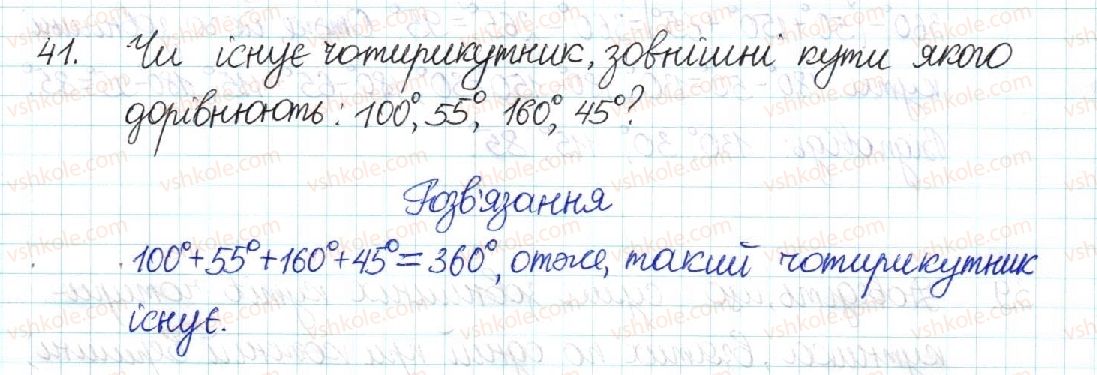 41. Чи існує чотирикутник, зовнішні кути якого
дорівнюють: 100°, 55°, 160°, 45°?
Розв'язання
100°+55°+160°+45°=360°, отже, такий чотирикутник
існує.